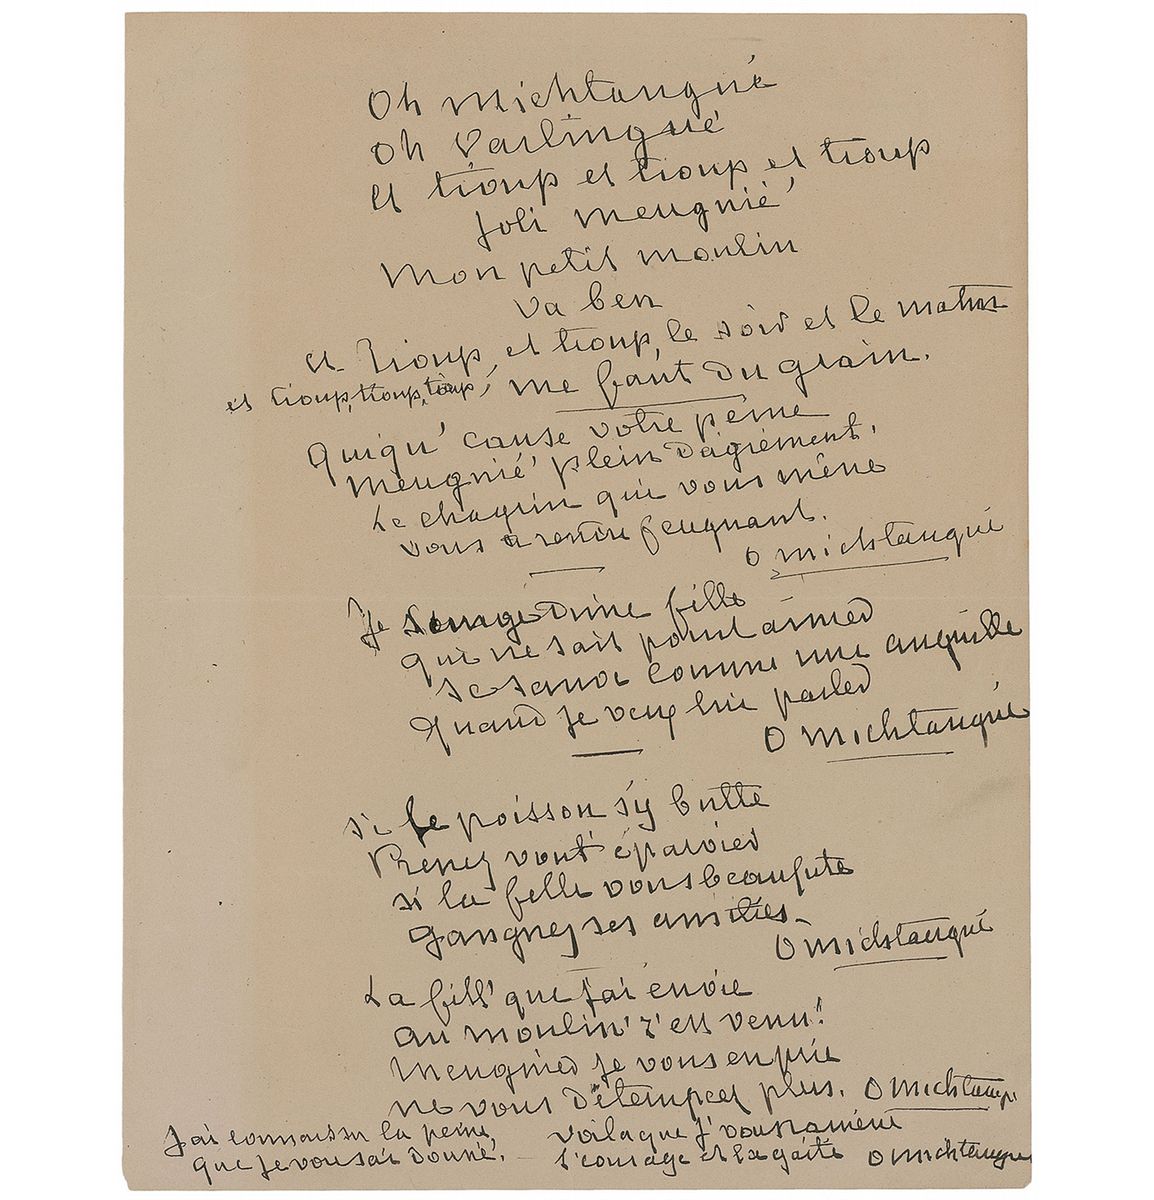 Oh michtangué
Oh Varlingué
et tioup et tioup et tioup
joli meugnié
Mon petit moulin
va ben
et tioup, et tioup, le soir et le matin
et tioup, tioup, tioup, me faut du grain.
Quiqu' cause votre peine
Meugnié plein d'agrément,
Le chagrin qui vous mène
vous a rendu feugnant.
O michtangué
Je songe d'une fille
qui ne sait point aimer
se sauve comme une anguille
quand je veux lui parler
O michtangué
si le poisson s'y butte
Prenez vout' éparvier
si la fille vous
Gangnez ses amitiés.
O michtangué
La fill' que j'ai envie
au moulin z'est venu!
Meugnier je vous en prie
ne vous détempcez plus. O michtangué
J'ai connaissu la peine,
que je vous ai donné,
voila que j' vous ramène
l' courage et la gaité O michtangué